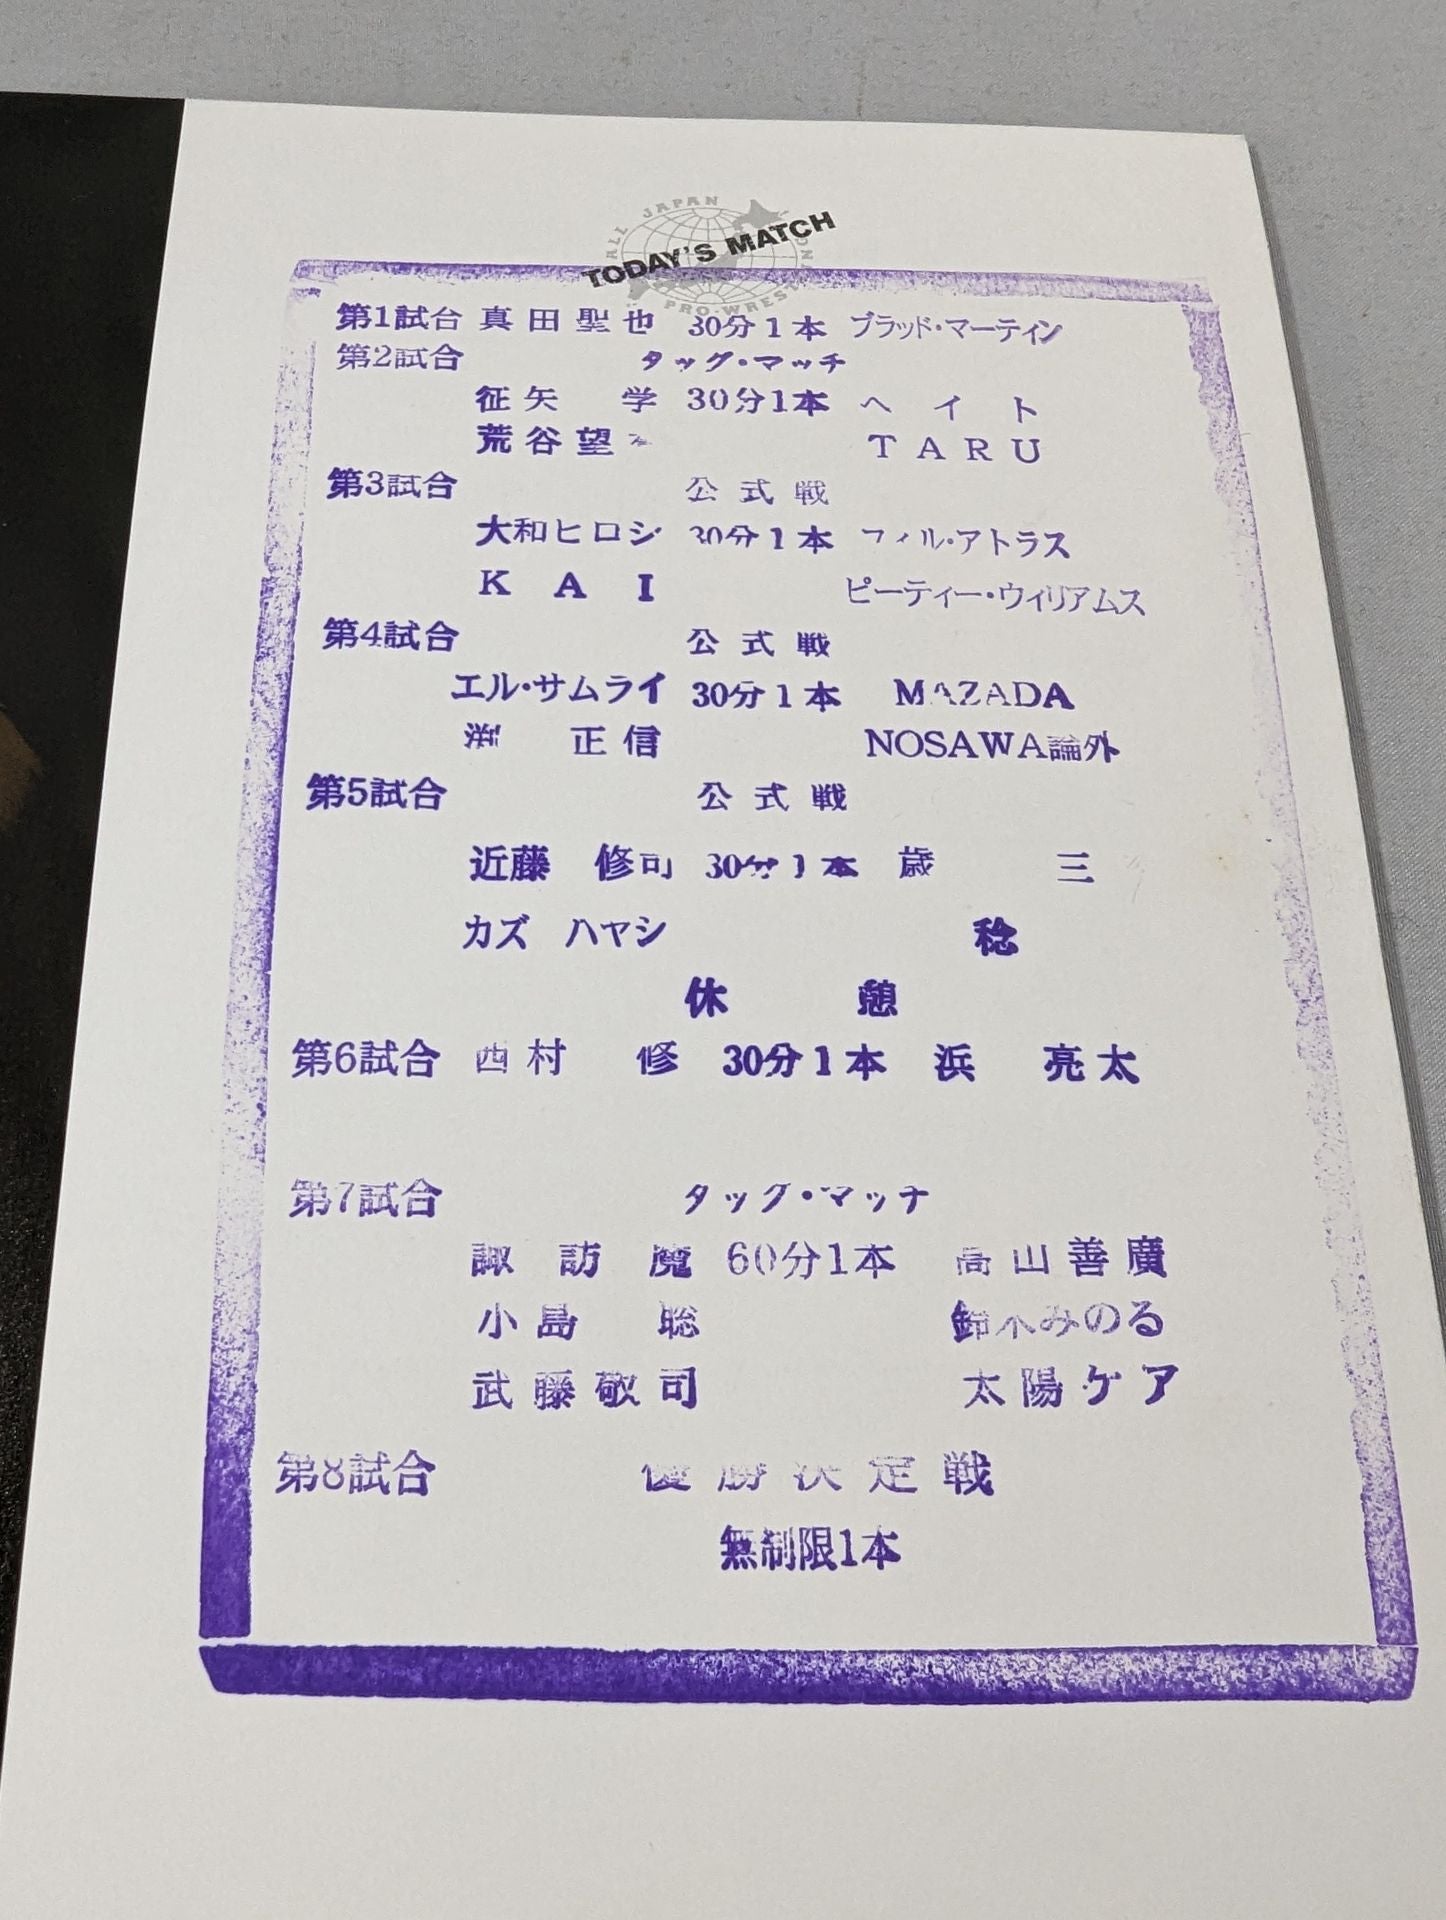 ALL JAPAN PRO-WRESTLING
TODAY'S MATCH
第1試合 真田聖也 30分1本 ブラッド・マーティン
第2試合 タッグ・マッチ
征矢 学 30分1本 ヘイト
荒谷望 TARU
第3試合 公式戦
大和ヒロシ 30分1本 フィル・アトラス
KAI ピーティー・ウィリアムス
第4試合 公式戦
エル・サムライ 30分1本 MAZADA
渕 正信 NOSAWA論外
第5試合 公式戦
近藤 修司 30分1本 歳 三
カズ ハヤシ 稔
休 憩
第6試合 西村 修 30分1本 浜 亮太
第7試合 タッグ・マッチ
諏訪魔 60分1本 高山善廣
小島 聡 鈴木みのる
武藤敬司 太陽ケア
第8試合 優勝決定戦
無制限1本